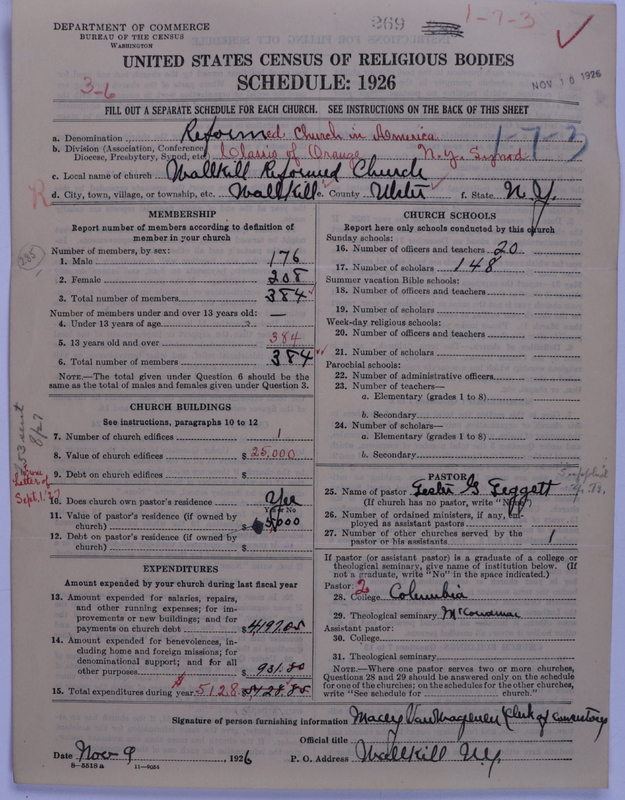 DEPARTMENT OF COMMERCE
BUREAU OF THE CENSUS
WASHINGTON
269
1-7-3
UNITED STATES CENSUS OF RELIGIOUS BODIES
SCHEDULE: 1926
3-6
NOV 10 1926
FILL OUT A SEPARATE SCHEDULE FOR EACH CHURCH. SEE INSTRUCTIONS ON THE BACK OF THIS SHEET
a. Denomination Reformed Church in America
1-7-3
b. Division (Association, Conference, Diocese, Presbytery, Synod, etc.) Classis of Orange N.Y. Synod
c. Local name of church Wallkill Reformed Church
R
d. City, town, village, or township, etc. Wallkill e. County Ulster f. State N.Y.
MEMBERSHIP
Report number of members according to definition of
member in your church
Number of members, by sex:
285
1. Male 176
2. Female 208
3. Total number of members 384
Number of members under and over 13 years old:
4. Under 13 years of age —
5. 13 years old and over 384
6. Total number of members 384
NOTE.—The total given under Question 6 should be the
same as the total of males and females given under Question 3.
CHURCH BUILDINGS
See instructions, paragraphs 10 to 12
7. Number of church edifices 1
8. Value of church edifices $ 25,000
9. Debt on church edifices $
sent
8/27
Letter of
Sept. 1. 27
10. Does church own pastor's residence Yes
Yes or No
11. Value of pastor's residence (if owned by
church) $ 5,000
12. Debt on pastor's residence (if owned by
church) $
EXPENDITURES
Amount expended by your church during last fiscal year
13. Amount expended for salaries, repairs,
and other running expenses; for im-
provements or new buildings; and for
payments on church debt $ 4197.05
14. Amount expended for benevolences, in-
cluding home and foreign missions; for
denominational support; and for all
other purposes $ 931.80
15. Total expenditures during year $ 5128.85
CHURCH SCHOOLS
Report here only schools conducted by this church
Sunday schools:
16. Number of officers and teachers 20
17. Number of scholars 148
Summer vacation Bible schools:
18. Number of officers and teachers
19. Number of scholars
Week-day religious schools:
20. Number of officers and teachers
21. Number of scholars
Parochial schools:
22. Number of administrative officers
23. Number of teachers—
a. Elementary (grades 1 to 8)
b. Secondary
24. Number of scholars—
a. Elementary (grades 1 to 8)
b. Secondary
PASTOR
25. Name of pastor Leslie G Leggett
(If church has no pastor, write "No")
26. Number of ordained ministers, if any, em-
ployed as assistant pastors
27. Number of other churches served by the
pastor or his assistants 1
If pastor (or assistant pastor) is a graduate of a college or
theological seminary, give name of institution below. (If
not a graduate, write "No" in the space indicated.)
Pastor: 2
28. College Columbia
29. Theological seminary
Assistant pastor:
30. College
31. Theological seminary
NOTE.—Where one pastor serves two or more churches,
Questions 28 and 29 should be answered only on the schedule
for one of the churches; on the schedules for the other churches,
write "See schedule for church."
Signature of person furnishing information Macey VanWagenen Clerk of Consistory
Official title
Date Nov 9, 1926
P. O. Address Wallkill N.Y.
8-5518 a 11-9054